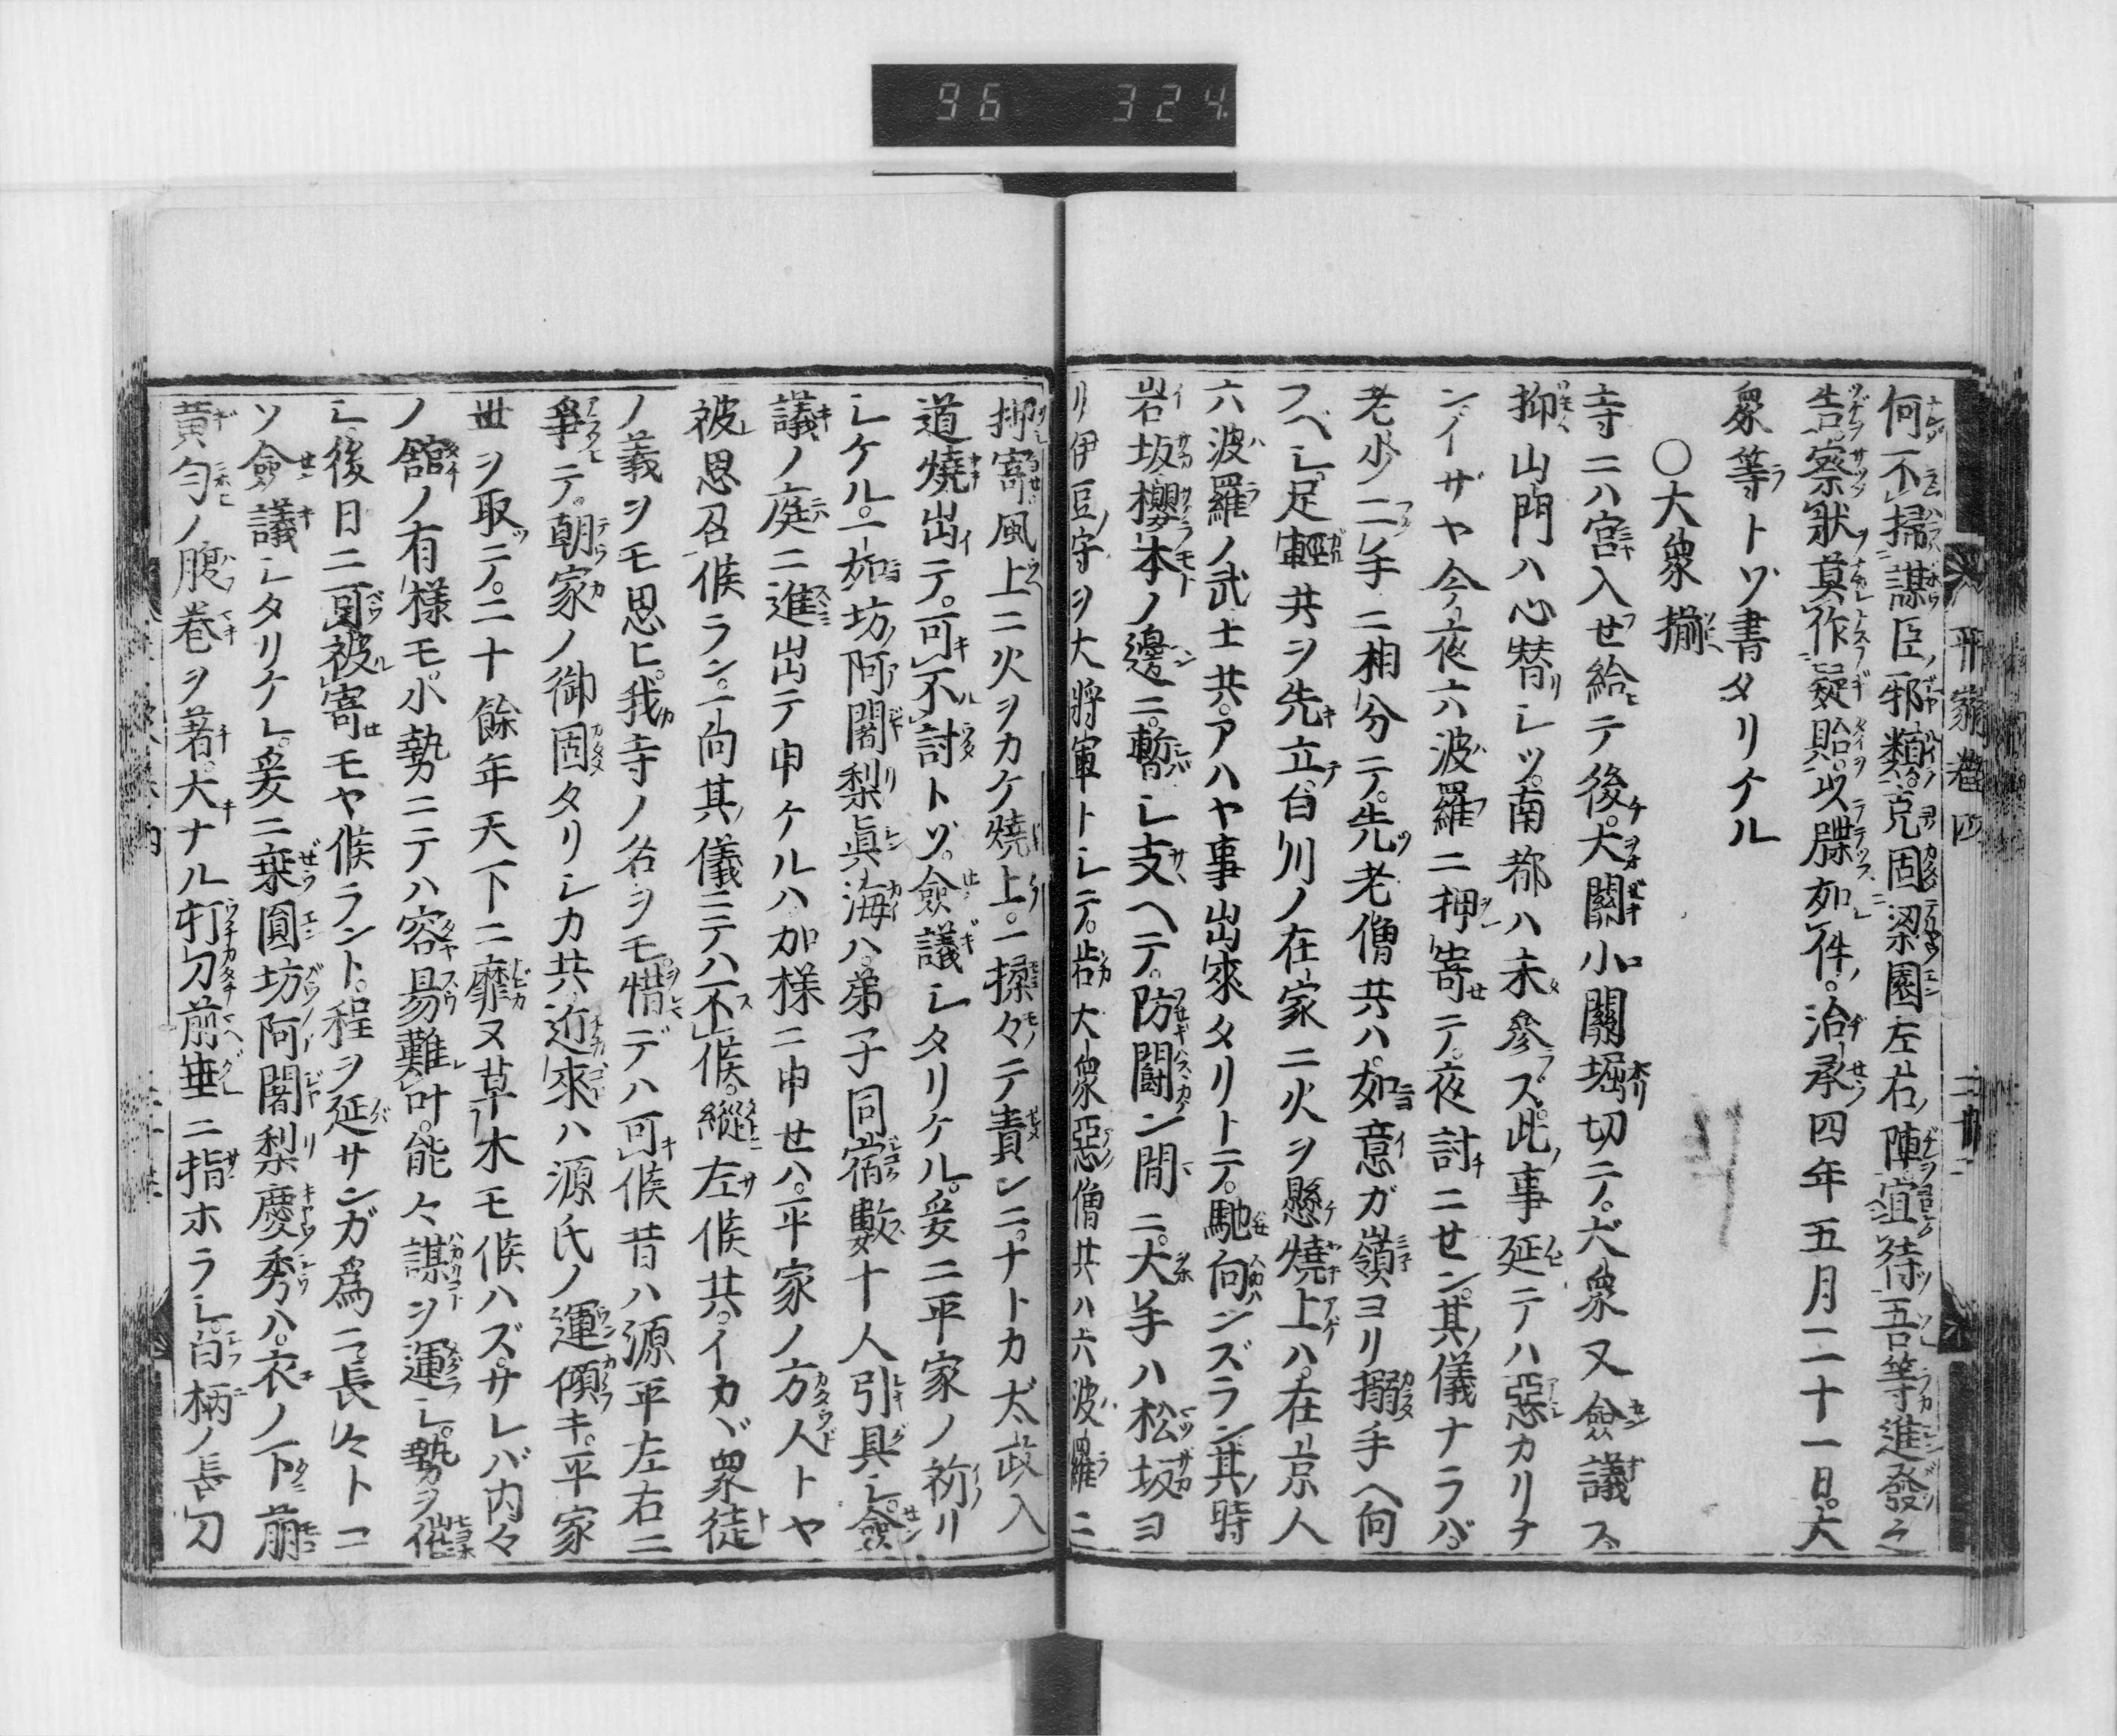 96 324
平家巻四 二十二
何不掃謀臣邪類。克固梁園左右陣宜待吾等進發之
告。察狀莫作疑貽。以牒如件。治承四年五月二十一日。大
衆等トゾ書タリケル
〇大衆揃
寺ニハ宮入セ給テ後。大關小關堀切テ。大衆又僉議ス
抑山門ハ心替レツ。南都ハ未參ズ。此事延テハ惡カリナ
ンイザヤ今夜六波羅ニ押寄テ。夜討ニセン。其儀ナラバ。
老少二手ニ相分テ。先老僧共ハ。如意ガ嶺ヨリ搦手ヘ向
フベシ。足輕共ヲ先立。白川ノ在家ニ火ヲ懸燒上ハ。在京人
六波羅ノ武士共。アハヤ事出來タリトテ。馳向ンズラン其時
岩坂櫻本ノ邊ニ。暫シ支ヘテ。防鬪ン間ニ。大手ハ松坂ヨ
リ伊豆守ヲ大將軍トレテ。若大衆惡僧共ハ六波羅ニ
押寄風上ニ火ヲカケ燒上。一揉々テ責ンニ。ナトカ太政入
道燒出テ。可不討トゾ。僉議レタリケル。爰ニ平家ノ祈リ
レケル。一如坊阿闍梨眞海ハ。弟子同宿數十人引具レ。僉
議ノ庭ニ進出テ申ケルハ加樣ニ申セハ。平家ノ方人トヤ
被思召候ラン。一向其儀ニテハ不候。縱左候共。イカヾ衆徒
ノ義ヲモ思ヒ。我寺ノ名ヲモ。惜デハ可候昔ハ源平左右ニ
爭テ。朝家ノ御固タリレカ共近來ハ源氏ノ運傾キ。平家
世ヲ取テ。二十餘年天下ニ靡ヌ草木モ候ハズ。サレバ内々
ノ舘ノ有樣モ。小勢ニテハ容易難叶。能々謀ヲ運レ。勢ヲ催
レ。後日ニ可被寄モヤ候ラント。程ヲ延サンガ爲ニ。長々トコ
ソ僉議レタリケレ。爰ニ乘圓坊阿闍梨慶秀ハ。衣ノ下ニ萠
黄匂ノ腹巻ヲ著。大ナル打刀前垂ニ指ホラレ。白柄ノ長刀